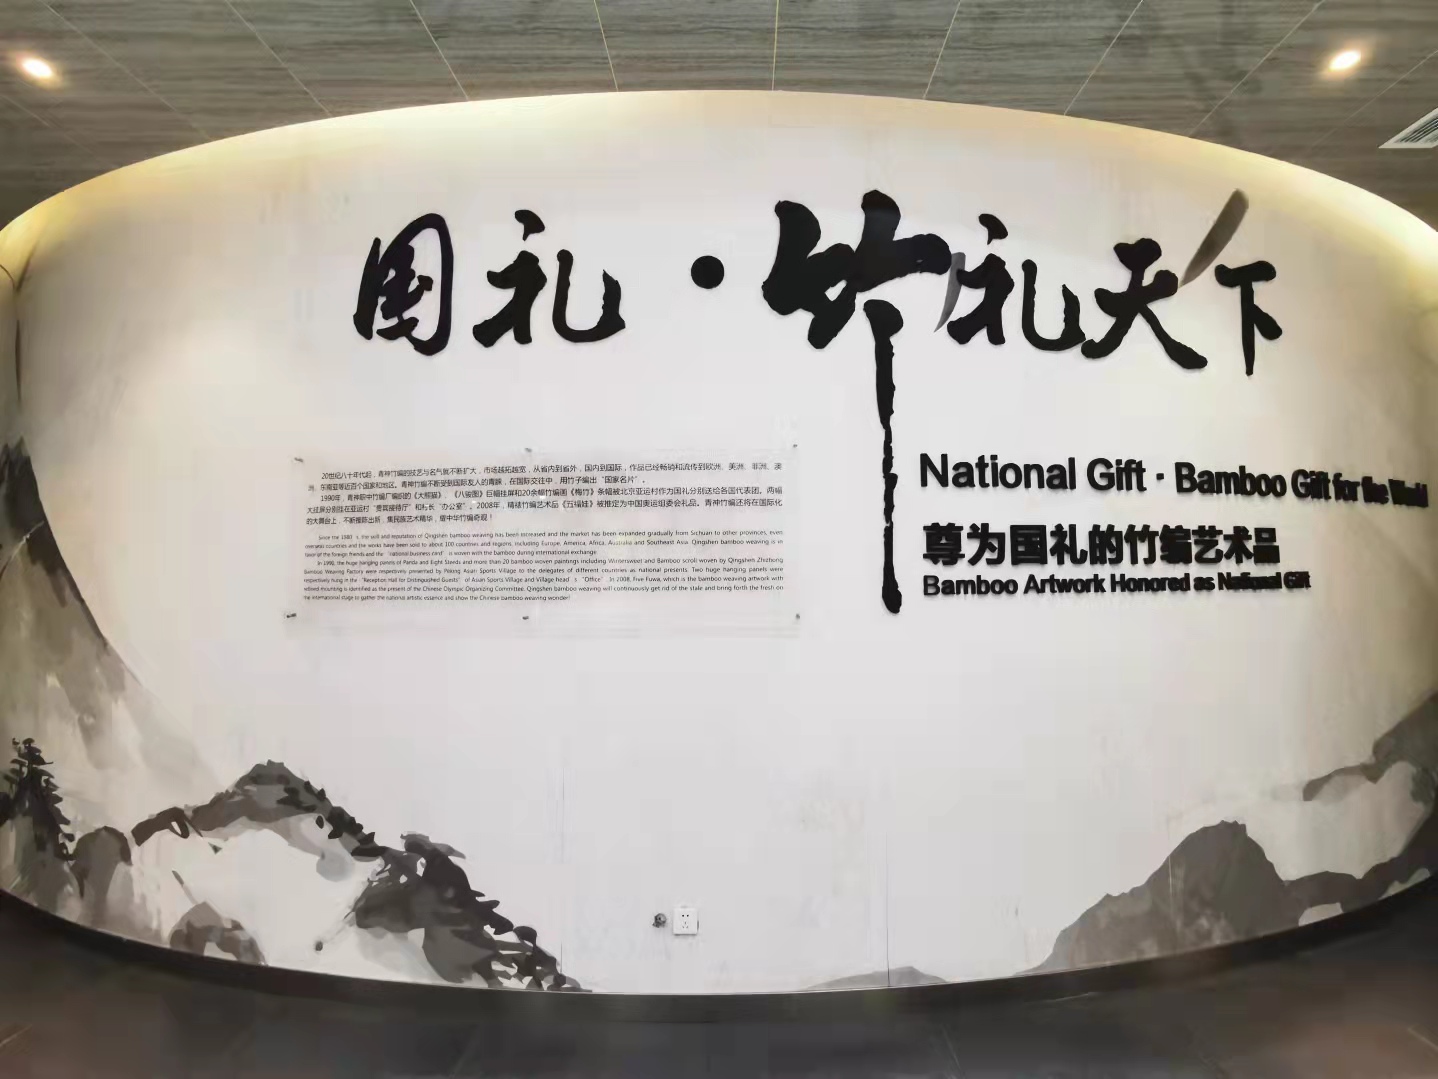 国礼·竹礼天下
National Gift · Bamboo Gift for the World
尊为国礼的竹编艺术品
Bamboo Artwork Honored as National Gift
20世纪八十年代起，青神竹编的技艺与名气就不断扩大，市场越拓越宽，从省内到省外，国内到国际，作品已经畅销和流传到欧洲、美洲、非洲、澳
洲、东南亚等近百个国家和地区。青神竹编不断受到国际友人的青睐，在国际交往中，用竹子编出“国家名片”。
1990年，青神职中竹编厂编织的《大熊猫》、《八骏图》巨幅挂屏和20余幅竹编画《梅竹》条幅被北京亚运村作为国礼分别送给各国代表团。两幅
大挂屏分别挂在亚运村“贵宾接待厅”和村长“办公室”。2008年，精裱竹编艺术品《五福娃》被推定为中国奥运组委会礼品。青神竹编还将在国际化
的大舞台上，不断推陈出新，集民族艺术精华，耀中华竹编奇观！
Since the 1980 s, the skill and reputation of Qingshen bamboo weaving has been increased and the market has been expanded gradually from Sichuan to other provinces, even
overseas countries and the works have been sold to about 100 countries and regions, including Europe, America, Africa, Australia and Southeast Asia. Qingshen bamboo weaving is in
favor of the foreign friends and the “national business card” is woven with the bamboo during international exchange.
In 1990, the huge hanging panels of Panda and Eight Steeds and more than 20 bamboo woven paintings including Wintersweet and Bamboo scroll woven by Qingshen Zhizhong
Bamboo Weaving Factory were respectively presented by Peking Asian Sports Village to the delegates of different countries as national presents. Two huge hanging panels were
respectively hung in the “Reception Hall for Distinguished Guests” of Asian Sports Village and Village head' s “Office”. In 2008, Five Fuwa, which is the bamboo weaving artwork with
refined mounting is identified as the present of the Chinese Olympic Organizing Committee. Qingshen bamboo weaving will continuously get rid of the stale and bring forth the fresh on
the international stage to gather the national artistic essence and show the Chinese bamboo weaving wonder!